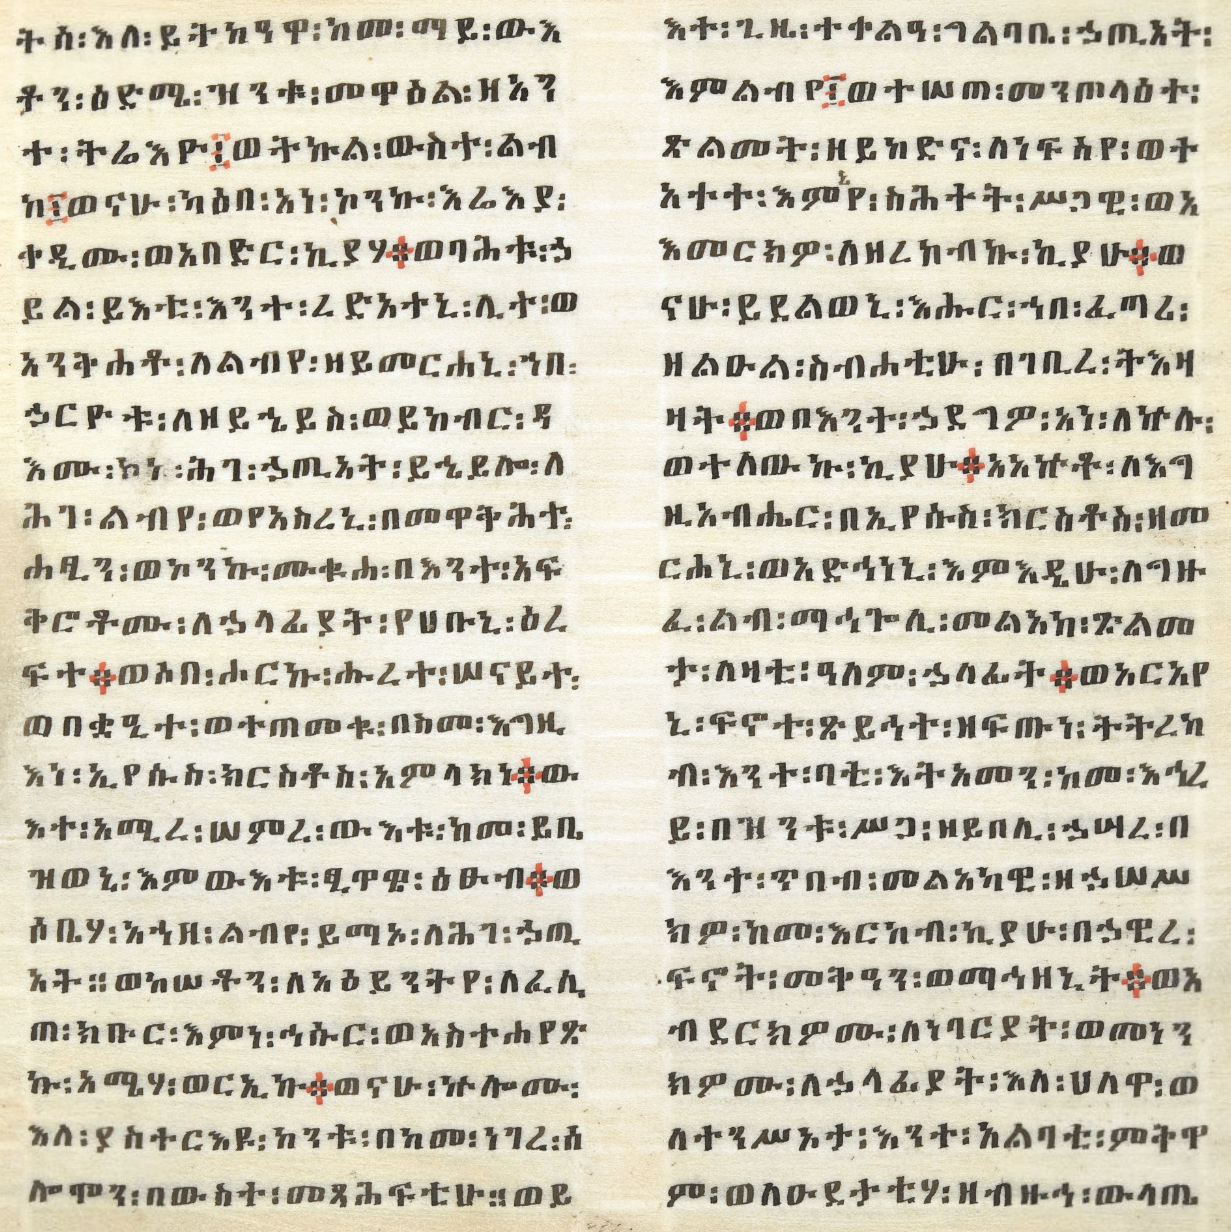 ት፡ ስ፡ እለ፡ ይትከዓዋ፡ ከመ፡ ማይ፡ ውእ
ቶን፡ ዕድሜ፡ ዝንቱ፡ መዋዕል፡ ዘአን
ተ፡ ትሬእዮ፤ ወትኩል፡ ውስተ፡ ልብ
ከ፤ ወናሁ፡ ካዕበ፡ አነ፡ ኮንኩ፡ እሬእያ፡
ቀዲሙ፡ ወአበድር፡ ኪያሃ። ወባሕቱ፡ ኃ
ይል፡ ይእቲ፡ እንተ፡ ረድአተኒ፡ ሊተ፡ ወ
አንትሕቶ፡ ለልብየ፡ ዘይመርሐኒ፡ ኀበ፡
ኃርዮቱ፡ ለዘይኄይስ፡ ወይከብር፡ ዳ
እሙ፡ ኮነ፡ ሕገ፡ ኃጢአት፡ ይኄይሎ፡ ለ
ሕገ፡ ልብየ፡ ወየአስረኒ፡ በመዋቅሕተ፡
ሐፂን፡ ወኮንኩ፡ ሙቁሐ፡ በእንተ፡ አፍ
ቅሮቶሙ፡ ለኃላፊያት፡ የሀቡኒ፡ ዕረ
ፍተ። ወሶበ፡ ሖርኩ፡ ሑረተ፡ ሠናይተ፡
ወበቋዒተ፡ ወተጠመቁ፡ በከመ፡ እግዚ
እነ፡ ኢየሱስ፡ ክርስቶስ፡ አምላክነ። ው
እተ፡ አሚረ፡ ሠምረ፡ ውእቱ፡ ከመ፡ ይቤ
ዝወኒ፡ እምውእቱ፡ ፂዋዌ፡ ዕፁብ። ወ
ሶቤሃ፡ አኀዘ፡ ልብየ፡ ይማኦ፡ ለሕገ፡ ኃጢ
አት። ወከሠቶን፡ ለአዕይንትየ፡ ለፈሊ
ጠ፡ ክቡር፡ እምነ፡ ኀሱር፡ ወአስተሐየጽ
ኩ፡ አሜሃ፡ ወርኢኩ። ወናሁ፡ ኵሎሙ፡
እለ፡ ያስተርእዩ፡ ከንቱ፡ በከመ፡ ነገረ፡ ሰ
ሎሞን፡ በውስተ፡ መጻሕፍቲሁ። ወይ
እተ፡ ጊዜ፡ ተቀልዓ፡ ገልባቤ፡ ኃጢአት፡
እምልብየ፤ ወተሠጠ፡ መንጦላዕተ፡
ጽልመት፡ ዘይከድና፡ ለነፍስየ፡ ወት
አተተ፡ እምኔየ፡ ስሕተት፡ ሥጋዊ፡ ወአ
እመርክዎ፡ ለዘረከብኩ፡ ኪያሁ። ወ
ናሁ፡ ይደልወኒ፡ እሑር፡ ኀበ፡ ፈጣሪ፡
ዘልዑል፡ ስብሐቲሁ፡ በገቢረ፡ ትእዛ
ዛት። ወበእንተ፡ ኃደግዎ፡ አነ፡ ለኵሉ፡
ወተለውኩ፡ ኪያሁ። አአኵቶ፡ ለእግ
ዚአብሔር፡ በኢየሱስ፡ ክርስቶስ፡ ዘመ
ርሐኒ፡ ወአድኀነኒ፡ እምእዲሁ፡ ለግዙ
ፈ፡ ልብ፡ ማኅቶሊ፡ መልአከ፡ ጽልመ
ታ፡ ለዛቲ፡ ዓለም፡ ኃላፊት። ወአርአየ
ኒ፡ ፍኖተ፡ ጽይሕት፡ ዘፍጡነ፡ ትትረከ
ብ፡ እንተ፡ ባቲ፡ እትአመን፡ ከመ፡ እኅረ
ይ፡ በዝንቱ፡ ሥጋ፡ ዘይበሊ፡ ኃሣረ፡ በ
እንተ፡ ጥበብ፡ መልአካዊ፡ ዘኃሠሥ
ክዎ፡ ከመ፡ እርከብ፡ ኪያሁ፡ በኃዊረ፡
ፍኖት፡ መቅዓን፡ ወማኅዘኒት። ወአ
ብደርክዎሙ፡ ለነባርያት፡ ወመነን
ክዎሙ፡ ለኃላፊያት፡ እለ፡ ህለዋ፡ ወ
ለተንሥአታ፡ እንተ፡ አልባቲ፡ ምቅዋ
ም፡ ወለዑደታቲሃ፡ ዘብዙኅ፡ ውላጤ